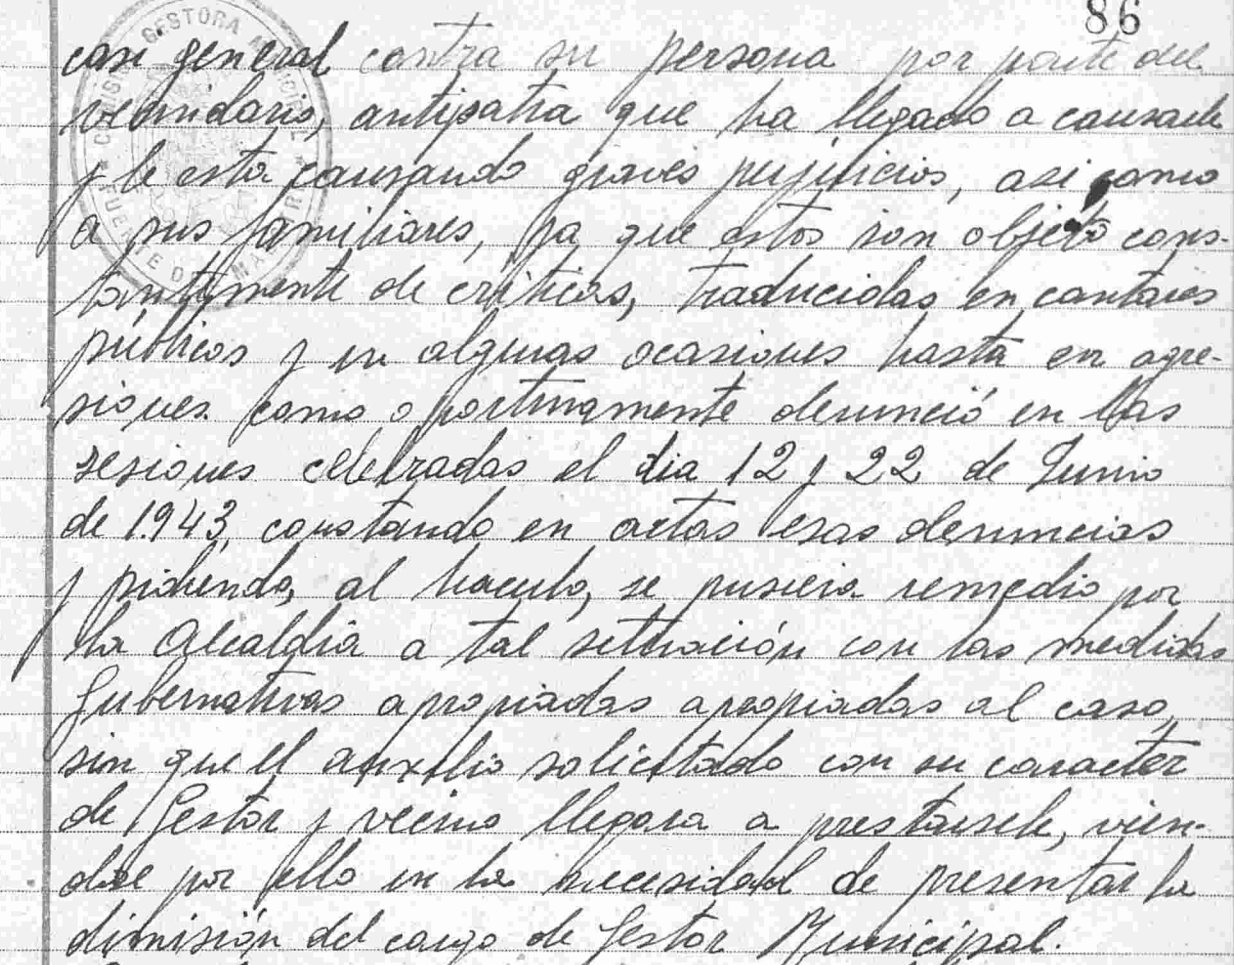 86
casi general contra su persona por parte del
vecindario, antipatia que ha llegado a causarle
y le está causando graves perjuicios, asi como
a sus familiares, ya que estos son objeto cons-
tantemente de críticas, traducidas en cantares
públicos y en algunas ocasiones hasta en agre-
siones como oportunamente denunció en las
sesiones celebradas el dia 12 y 22 de Junio
de 1.943, constando en actas esas denuncias
y pidiendo, al hacerlo, se pusiera remedio por
la Alcaldía a tal situación con las medidas
Gubernativas apropiadas apropiadas al caso,
sin que el auxilio solicitado con su caracter
de Gestor y vecino llegara a prestarsele, vien-
dose por ello en la necesidad de presentar la
dimisión del cargo de Gestor Municipal.